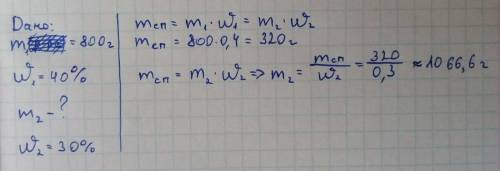 Дано:
m = 800г
ω₁ = 40%
m₂ - ?
ω₂ = 30%
mсп = m₁ · ω₁ = m₂ · ω₂
mсп = 800 · 0,4 = 320г
mсп = m₂ · ω₂ => m₂ = mсп/ω₂ = 320/0,3 ≈ 1066,6г